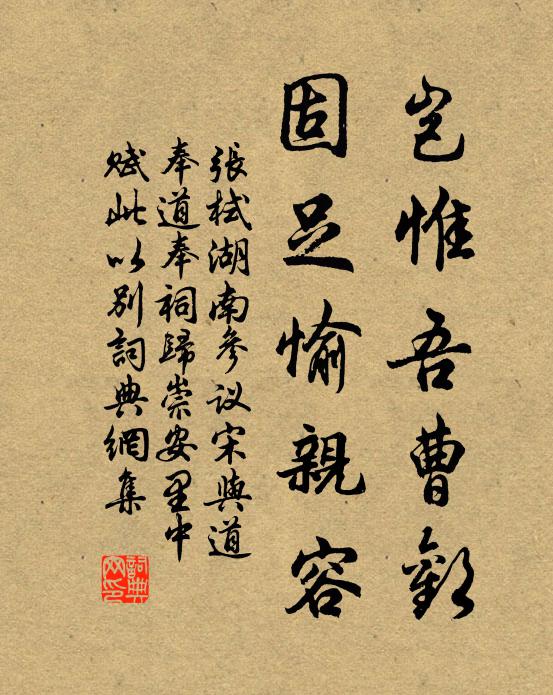 岂惟吾曹歡
固足愉親容
張栻湖南參议宋與道
奉道奉祠歸崇安里中
賦此以别詞典網集
詞典
网印